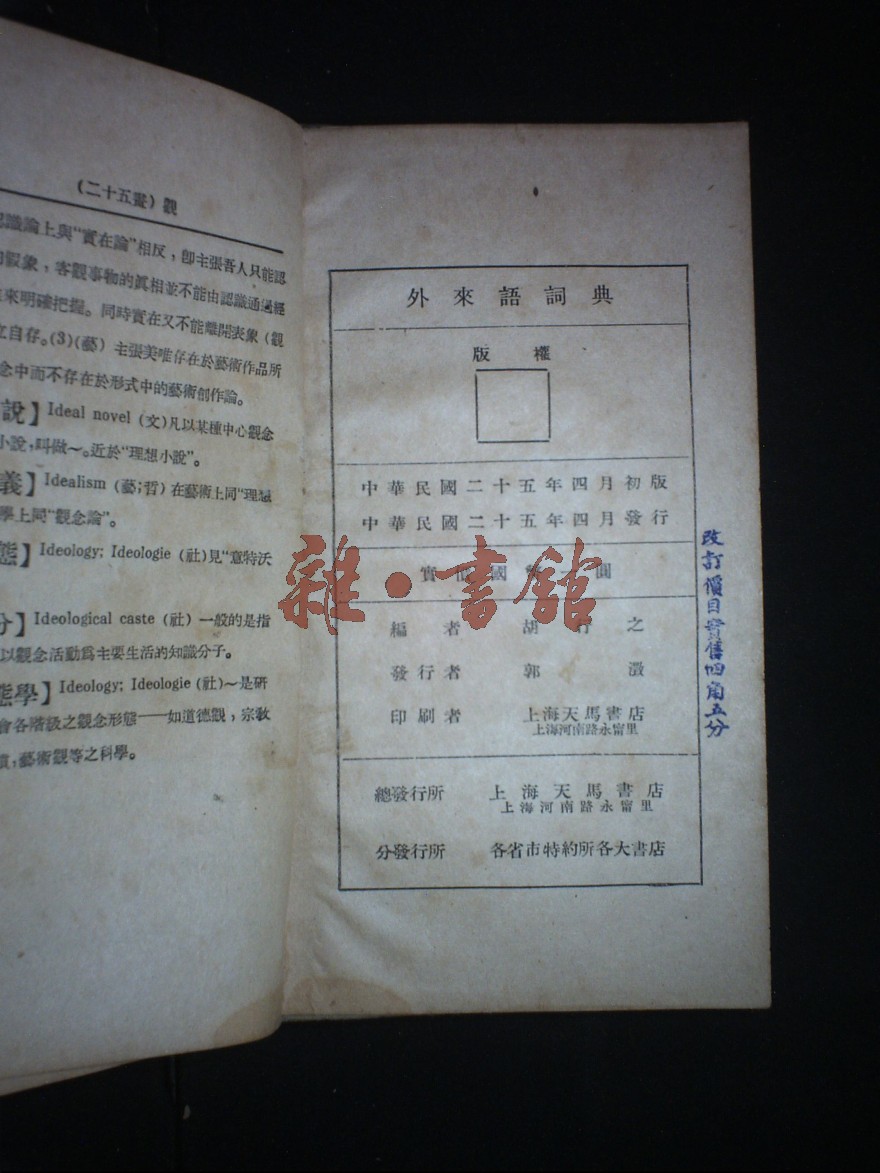 (二十五畫)觀
認識論上與“實在論”相反，卽主張吾人只能認
假象，客觀事物的眞相並不能由認識通過經
來明確把握。同時實在又不能離開表象(觀
立自存。(3)(藝) 主張美唯存在於藝術作品所
念中而不存在於形式中的藝術創作論。
說】Ideal novel (文)凡以某種中心觀念
小說，叫做～。近於“理想小說”。
義】Idealism (藝;哲) 在藝術上同“理想
學上同“觀念論”。
態】Ideology; Ideologie (社)見“意特沃
分】Ideological caste (社) 一般的是指
以觀念活動爲主要生活的知識分子。
態學】Ideology; Ideologie (社)～是研
會各階級之觀念形態——如道德觀，宗敎
藝術觀等之科學。
外來語詞典
版權
中華民國二十五年四月初版
中華民國二十五年四月發行
實價國幣一圓
編者 胡行之
發行者 郭澂
印刷者 上海天馬書店
上海河南路永甯里
總發行所 上海天馬書店
上海河南路永甯里
分發行所 各省市特約所各大書店
改訂價目實售四角五分
雜·書館